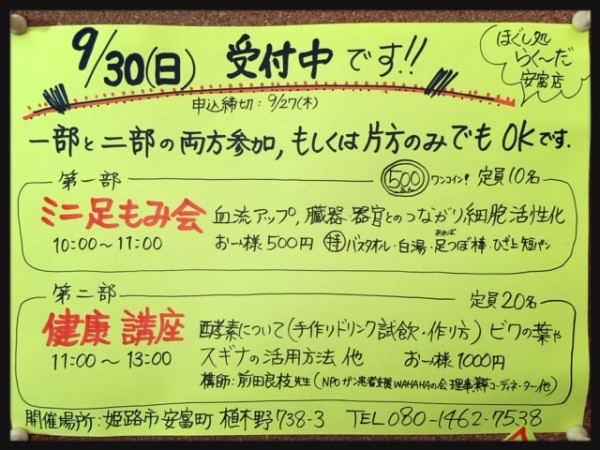 9/30(日) 受付中です!!
ほぐし処
らく〜だ
安富店
申込締切：9/27(木)
一部と二部の両方参加,もしくは片方のみでもOKです.
第一部
500 ワンコイン! 定員10名
ミニ足もみ会 血流アップ,臓器器官とのつながり細胞活性化
10:00〜11:00 お一人様500円 持 バスタオル・白湯・足つぼ棒・ひざ上短パン
あれば
第二部 定員20名
健康講座 酵素について(手作りドリンク試飲・作り方) ビワの葉や
11:00〜13:00 スギナの活用方法 他 お一人様1000円
講師：前田良枝先生(NPOガン患者支援WAHAHAの会理事 コーディネーター他)
開催場所：姫路市安富町植木野738-3 TEL 080-1462-7538